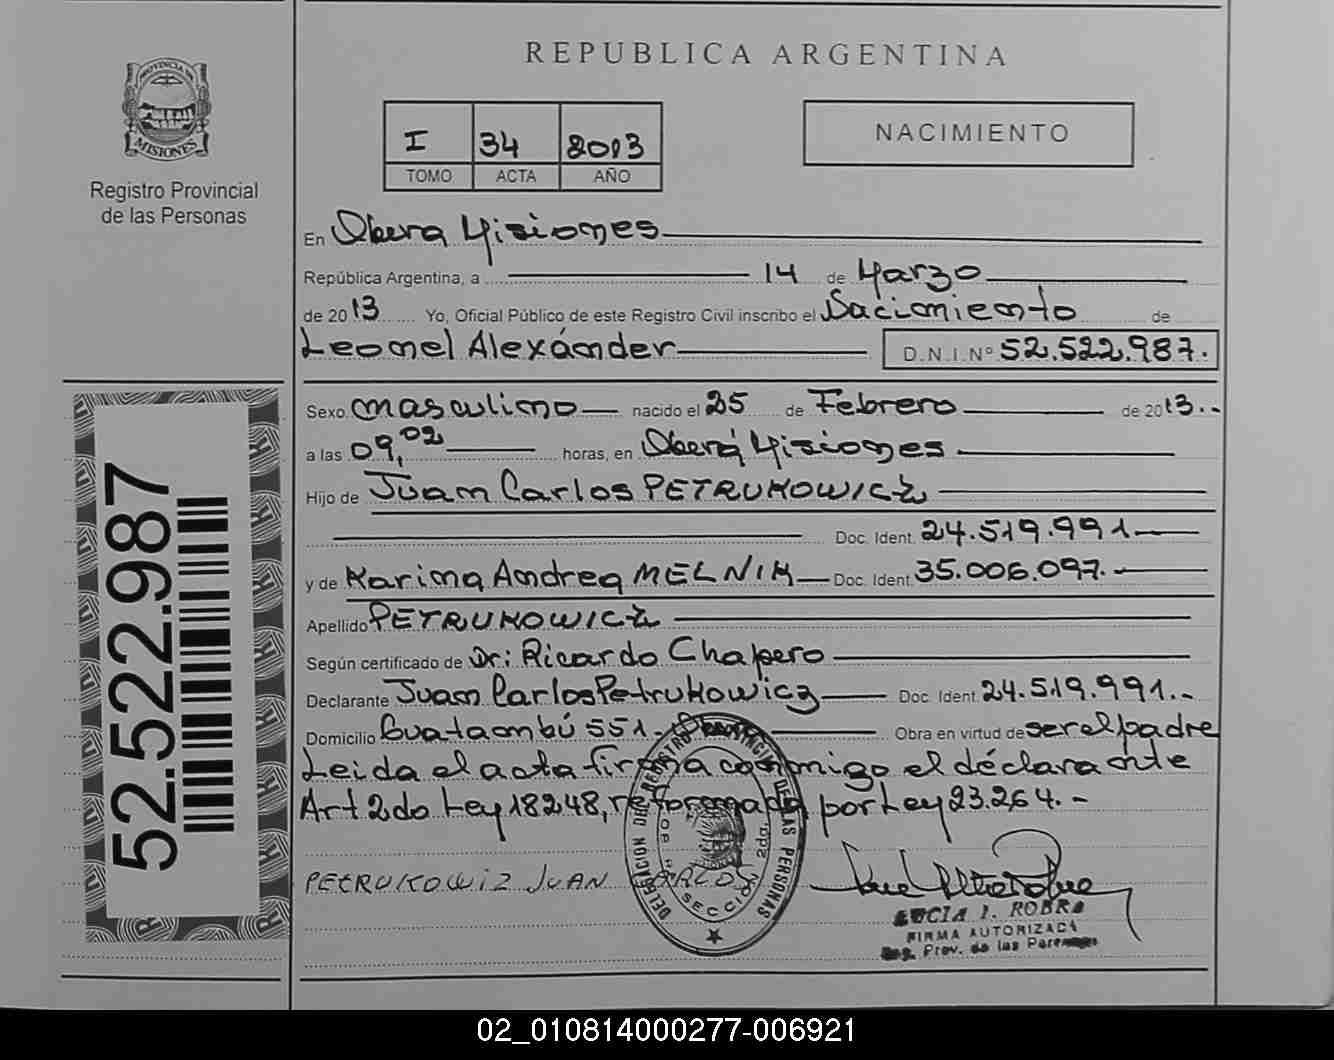 REPUBLICA ARGENTINA
PROVINCIA DE
MISIONES
Registro Provincial
de las Personas
I 34 2013
TOMO ACTA AÑO
NACIMIENTO
En Oberá Misiones
República Argentina, a 14 de Marzo
de 2013 Yo, Oficial Público de este Registro Civil inscribo el Nacimiento de
Leonel Alexánder D.N.I.Nº 52.522.987.
Sexo masculino nacido el 25 de Febrero de 2013.-
a las 09,02 horas, en Oberá Misiones
Hijo de Juan Carlos PETRUKOWICZ
Doc. Ident. 24.519.991
y de Karina Andrea MELNIK Doc. Ident. 35.006.097.-
Apellido PETRUKOWICZ
Según certificado de Dr: Ricardo Chapero
Declarante Juan Carlos Petrukowicz Doc. Ident. 24.519.991.-
Domicilio Guatambú 551- Oberá Obra en virtud de ser el padre
Leida el acta firma conmigo el déclarante
Art 2do Ley 18248, reformada por Ley 23.264.-
PETRUKOWIZ JUAN CARLOS
DELEGACION DEL REGISTRO PROVINCIAL DE LAS PERSONAS
2da. SECCION
LUCIA I. ROBRA
FIRMA AUTORIZADA
Reg. Prov. de las Personas
52.522.987
02_010814000277-006921